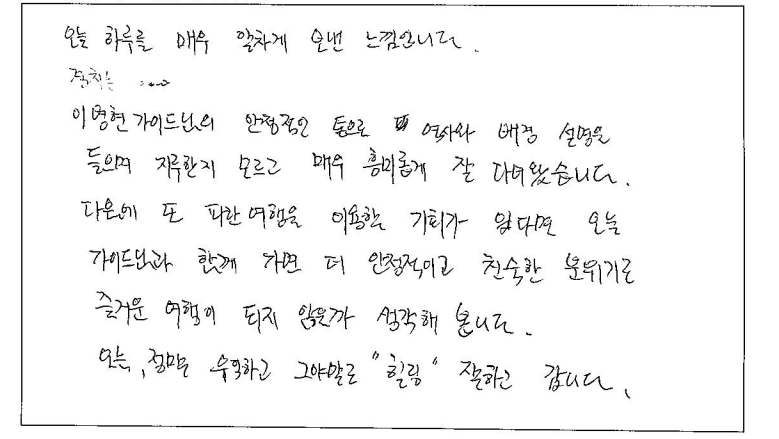 오늘 하루를 매우 알차게 보낸 느낌입니다.
이명현 가이드님의 안정적인 톤으로 역사와 배경 설명을
들으며 지루한지 모르고 매우 흥미롭게 잘 다녀왔습니다.
다음에 또 파란여행을 이용할 기회가 있다면 오늘
가이드님과 함께 가면 더 안정적이고 친숙한 분위기로
즐거운 여행이 되지 않을까 생각해 봅니다.
오늘, 정말 유익하고 그야말로 "힐링" 잘하고 갑니다.